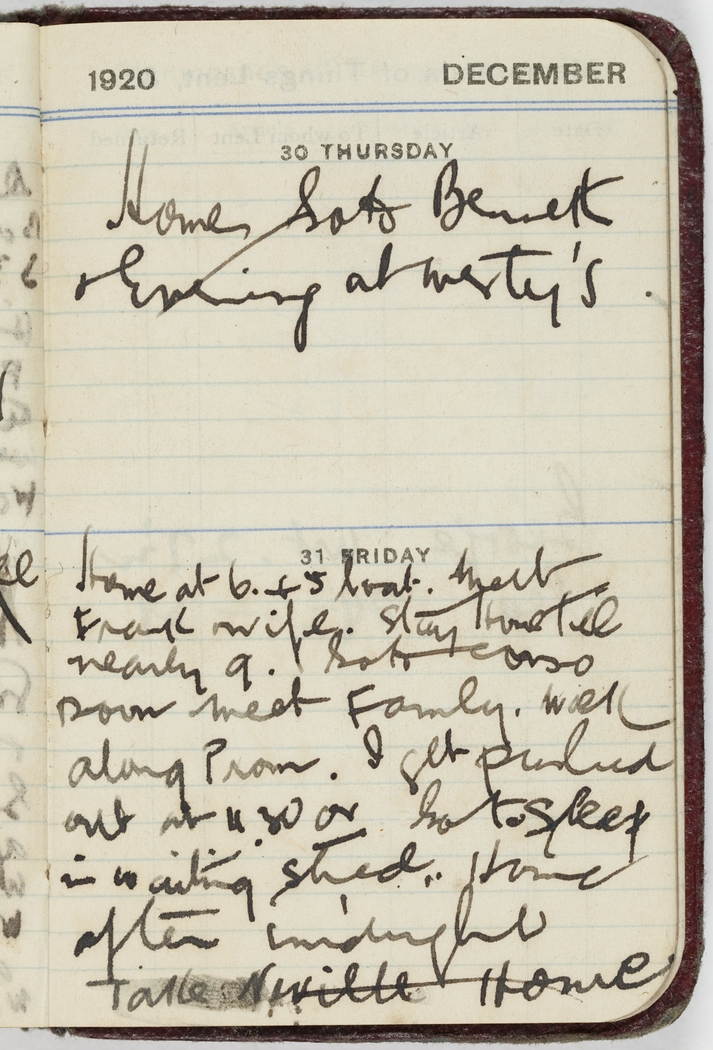 1920 DECEMBER
30 THURSDAY
Home, Go to Bennett
& Evening at Westy's.
31 FRIDAY
Home at 6.45 boat. Meet
Frank wife. Stay Hotel
nearly 9. Go to Corso
soon meet Family. Walk
along Prom. I get pushed
out at 11 30 or Go to sleep
in waiting shed.. Home
after midnight
Take Neville Home